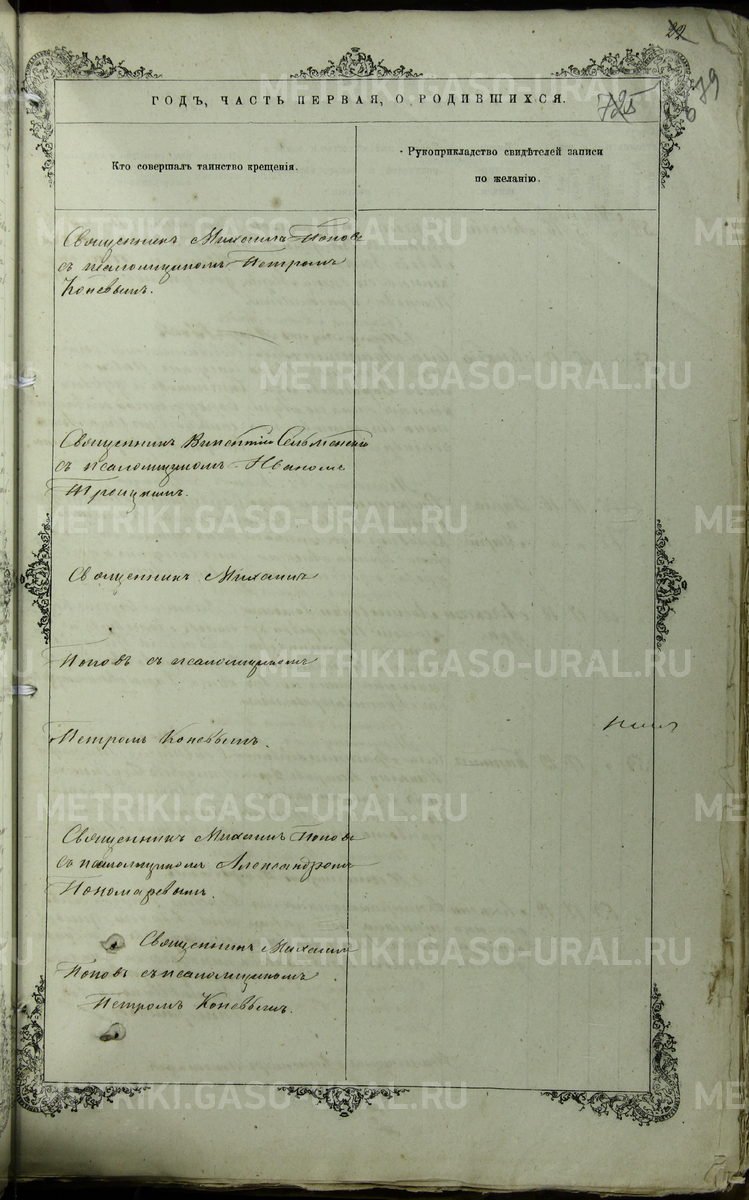 22
79
725
ГОДЪ, ЧАСТЬ ПЕРВАЯ, О РОДИВШИХСЯ.
Кто совершалъ таинство крещенія.
Рукоприкладство свидѣтелей записи
по желанію.
Священникъ Михаилъ Поповъ
съ псаломщикомъ Петромъ
Коневымъ.
Священникъ Викентій
съ псаломщикомъ Иваномъ
Троицкимъ.
Священникъ Михаилъ
Поповъ съ псаломщикомъ
Петромъ Коневымъ.
Священникъ Михаилъ Поповъ
съ псаломщикомъ Александромъ
Пономаревымъ.
Священникъ Михаилъ
Поповъ съ псаломщикомъ
Петромъ Коневымъ.
METRIKI.GASO-URAL.RU